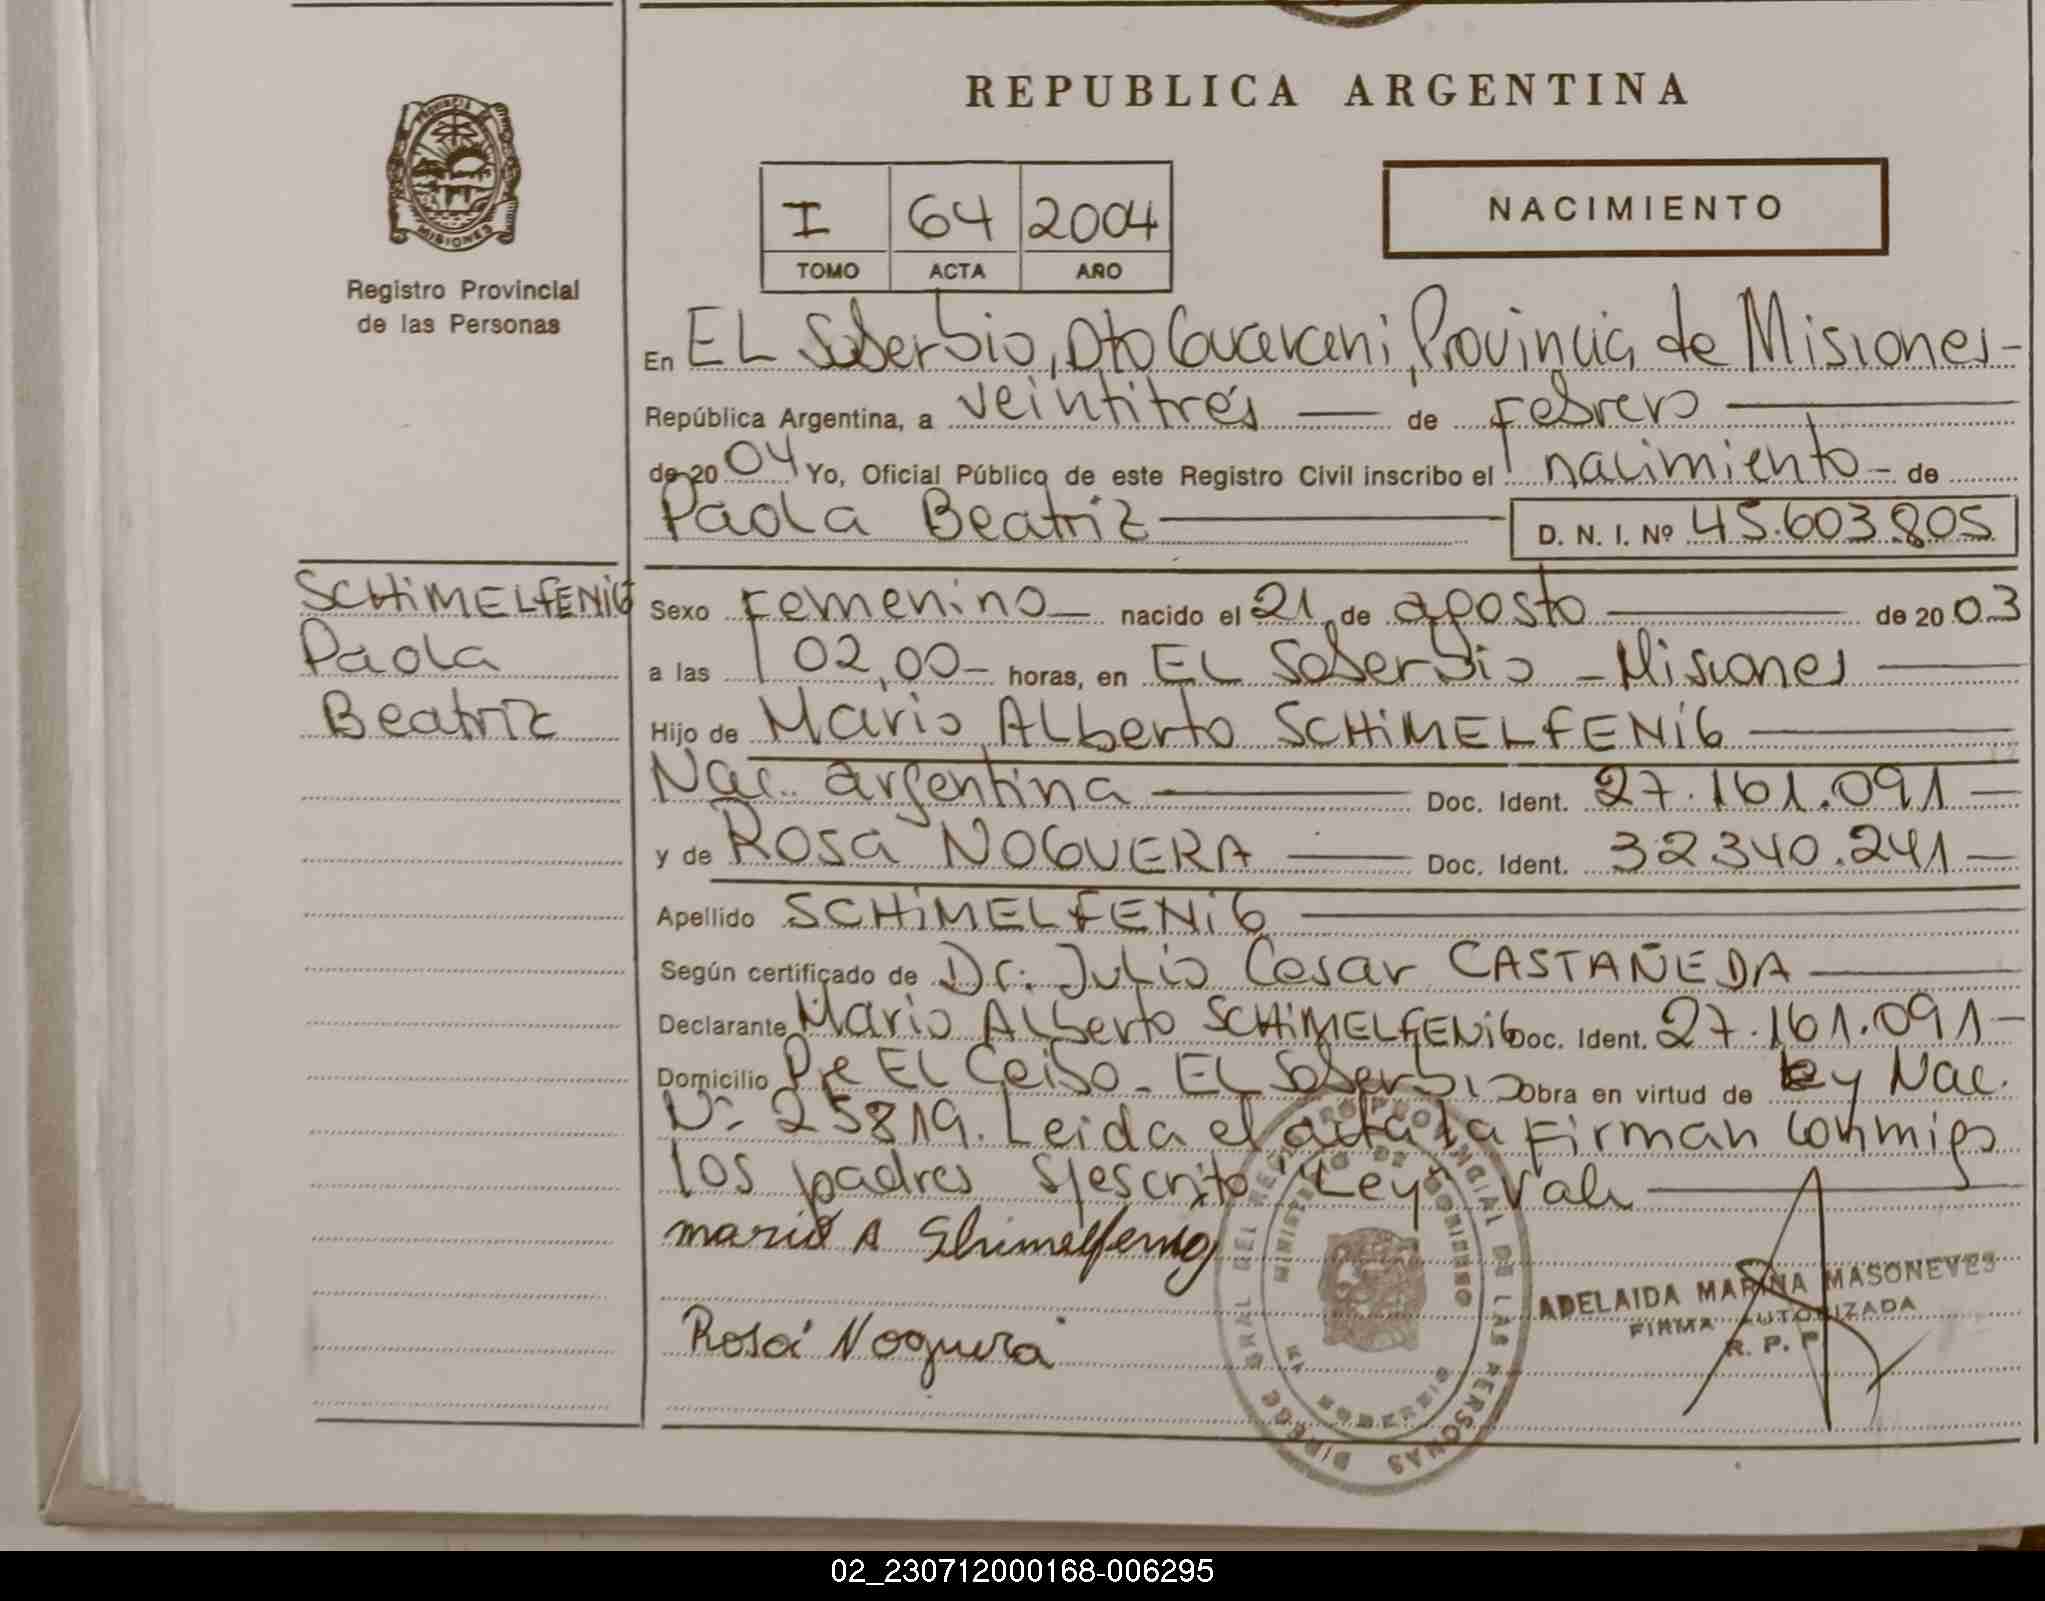 REPUBLICA ARGENTINA
PROVINCIA
MISIONES
Registro Provincial
de las Personas
I 64 2004
TOMO ACTA AÑO
NACIMIENTO
En EL Soberbio, Dto Guarani, Provincia de Misiones-
República Argentina, a veintitrés — de Febrero —
de 20 04 Yo, Oficial Público de este Registro Civil inscribo el nacimiento - de
Paola Beatriz — D. N. I. Nº 45.603.805
SCHiMELFENiG
Paola
Beatriz
Sexo Femenino — nacido el 21 de agosto — de 20 03
a las 02,00- horas, en EL Soberbio - Misiones —
Hijo de Mario Alberto SCHiMELFENiG —
Nac. argentina — Doc. Ident. 27.161.091 —
y de Rosa NOGUERA — Doc. Ident. 32340.241 —
Apellido SCHiMELFENiG —
Según certificado de Dr. Julio Cesar CASTAÑEDA —
Declarante Mario Alberto SCHiMELFENiG Doc. Ident. 27.161.091 —
Domicilio EL Ceibo - EL Soberbio Obra en virtud de Ley Nac.
Nº 25819. Leida el acta la Firman conmigo
los padres S/escrito "Ley" Vale —
mario A Shimelfenig
Rosa Noguera
ADELAIDA MARINA MASONEVES
FIRMA AUTORIZADA
R. P. P.
REGISTRO PROVINCIAL DE LAS PERSONAS
MINISTERIO DE GOBIERNO
02_230712000168-006295